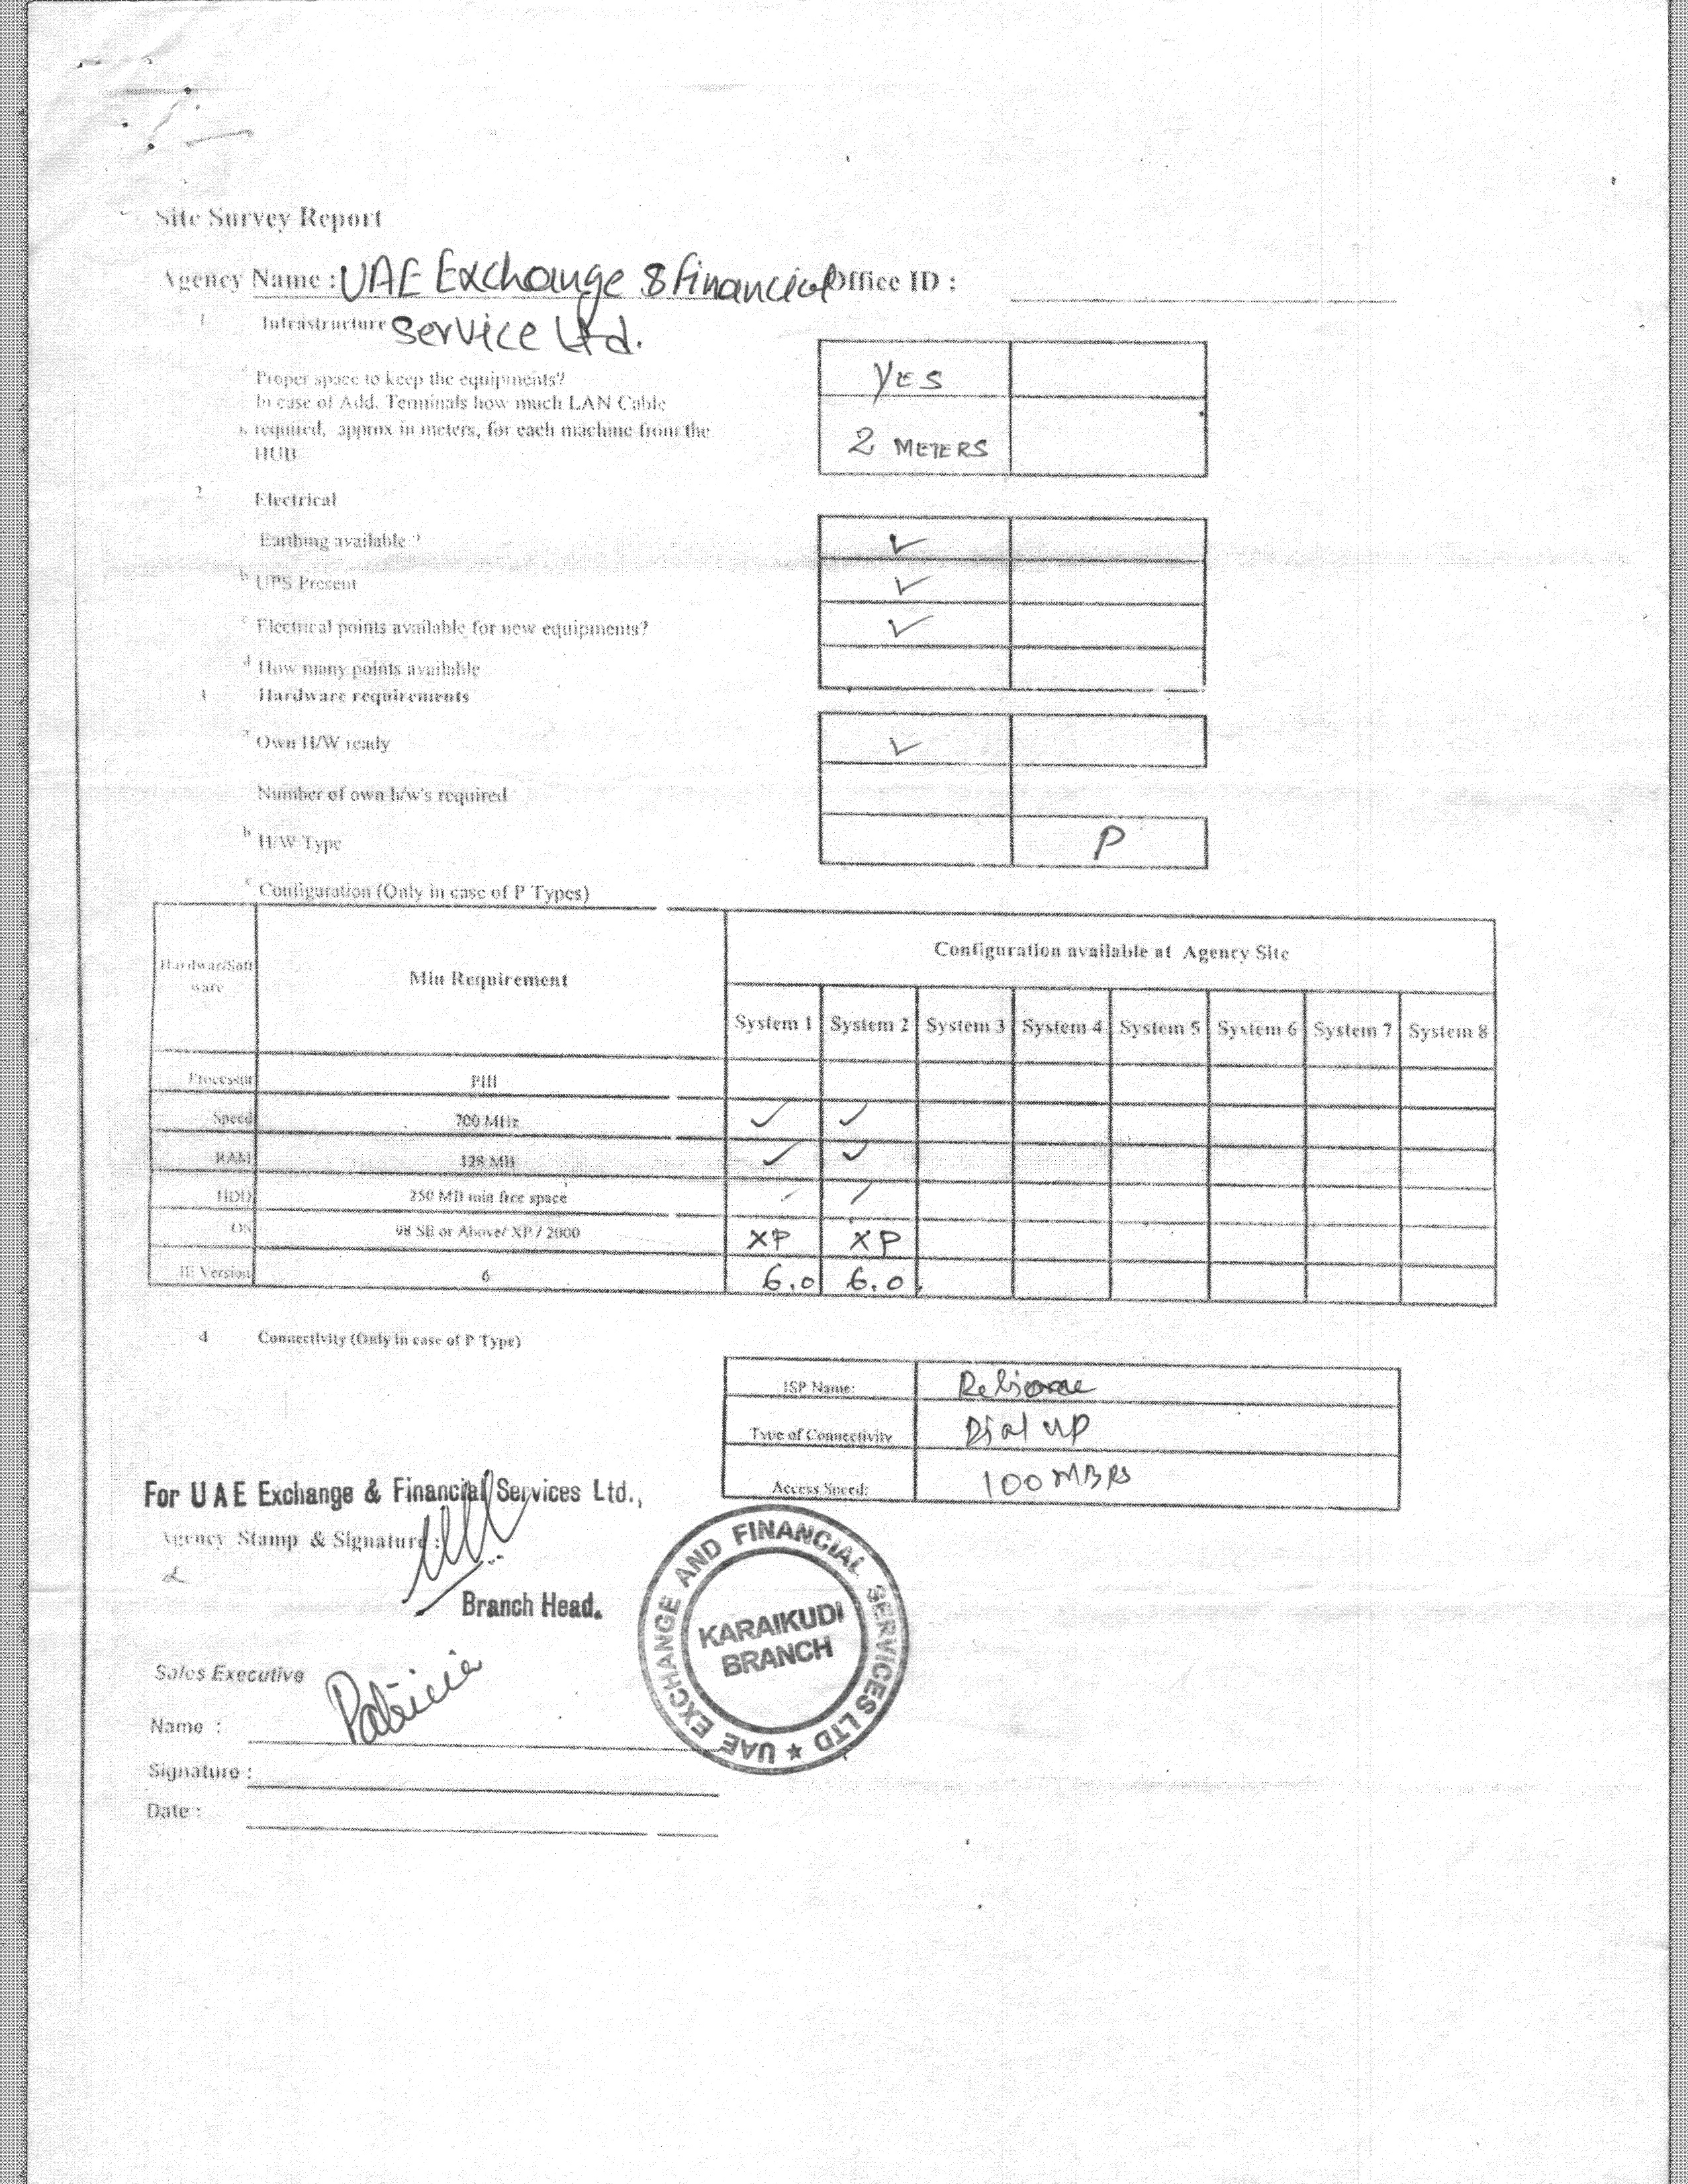 Site Survey Report
Agency Name : UAE Exchange & Financial Office ID :
Service Ltd.
1 Infrastructure
Proper space to keep the equipments? YES
In case of Add. Terminals how much LAN Cable
required, approx in meters, for each machine from the
HUB 2 METERS
2 Electrical
Earthing available ? ✓
b UPS Present ✓
c Electrical points available for new equipments? ✓
d How many points available
3 Hardware requirements
a Own H/W ready ✓
Number of own h/w's required
b H/W Type P
c Configuration (Only in case of P Types)
Hardwar/Soft
ware Min Requirement Configuration available at Agency Site
System 1 System 2 System 3 System 4 System 5 System 6 System 7 System 8
Processor PIII
Speed 700 MHz ✓ ✓
RAM 128 MB ✓ ✓
HDD 250 MB min free space ✓ ✓
OS 98 SE or Above/ XP / 2000 XP XP
IE Version 6 6.0 6.0
4 Connectivity (Only in case of P Type)
ISP Name: Reliance
Type of Connectivity Dial up
Access Speed: 100 MBPS
For UAE Exchange & Financial Services Ltd.,
Agency Stamp & Signature :
Branch Head.
UAE EXCHANGE AND FINANCIAL SERVICES LTD ★
KARAIKUDI
BRANCH
Sales Executive
Name : Patricia
Signature :
Date :